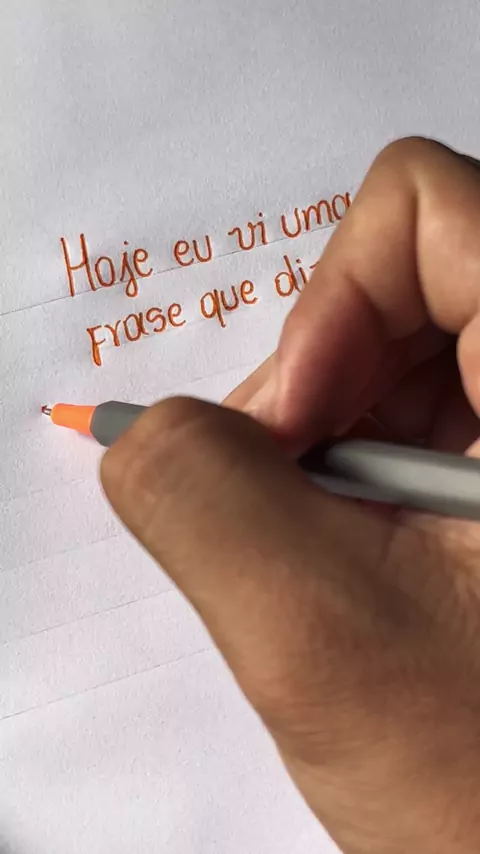 Hoje eu vi uma
frase que